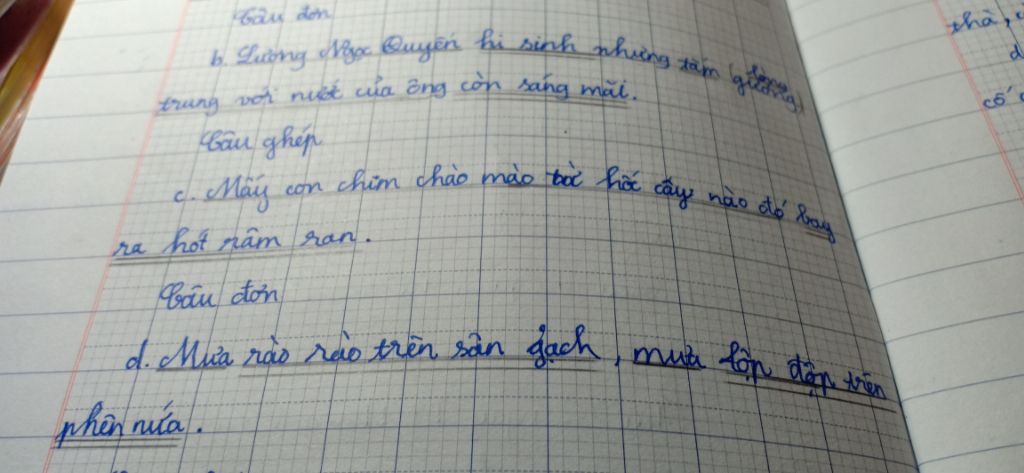 Câu đơn
b. Lương Ngọc Quyến hi sinh nhưng tấm lòng
trung với nước của ông còn sáng mãi.
Câu ghép
c. Mấy con chim chào mào từ hốc cây nào đó bay
ra hót râm ran.
Câu đơn
d. Mưa rào rào trên sân gạch, mưa lộp độp trên
phên nứa.